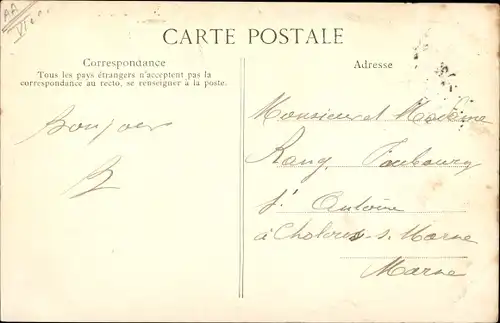 CARTE POSTALE
Correspondance
Tous les pays étrangers n'acceptent pas la
correspondance au recto, se renseigner à la poste.
Adresse
Bonjour
Monsieur et Madame
Faubourg
St Antoine
à Chalons-s. Marne
Marne